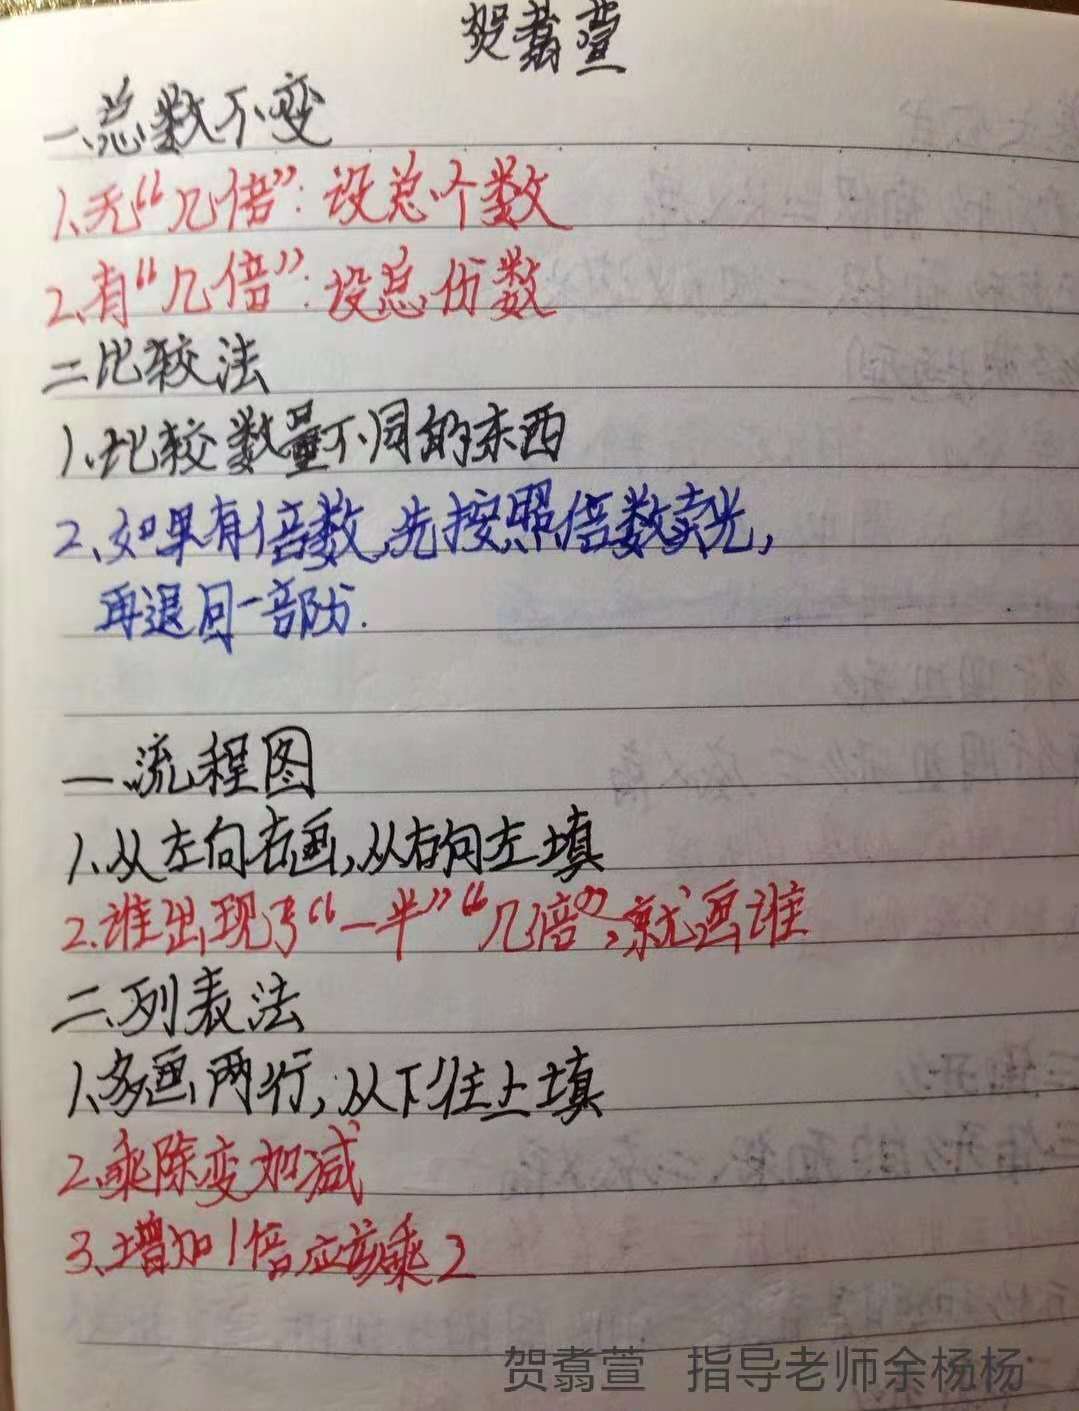 贺翥萱
一、总数不变
1、无“几倍”:设总个数
2、有“几倍”:设总份数
二、比较法
1、比较数量不同的东西
2、如果有倍数,先按照倍数卖光,
再退回一部分.
一、流程图
1、从左向右画,从右向左填
2、谁出现了“一半”“几倍”,就画谁
二、列表法
1、多画两行,从下往上填
2、乘除变加减
3、增加1倍应该乘2
贺翥萱 指导老师余杨杨